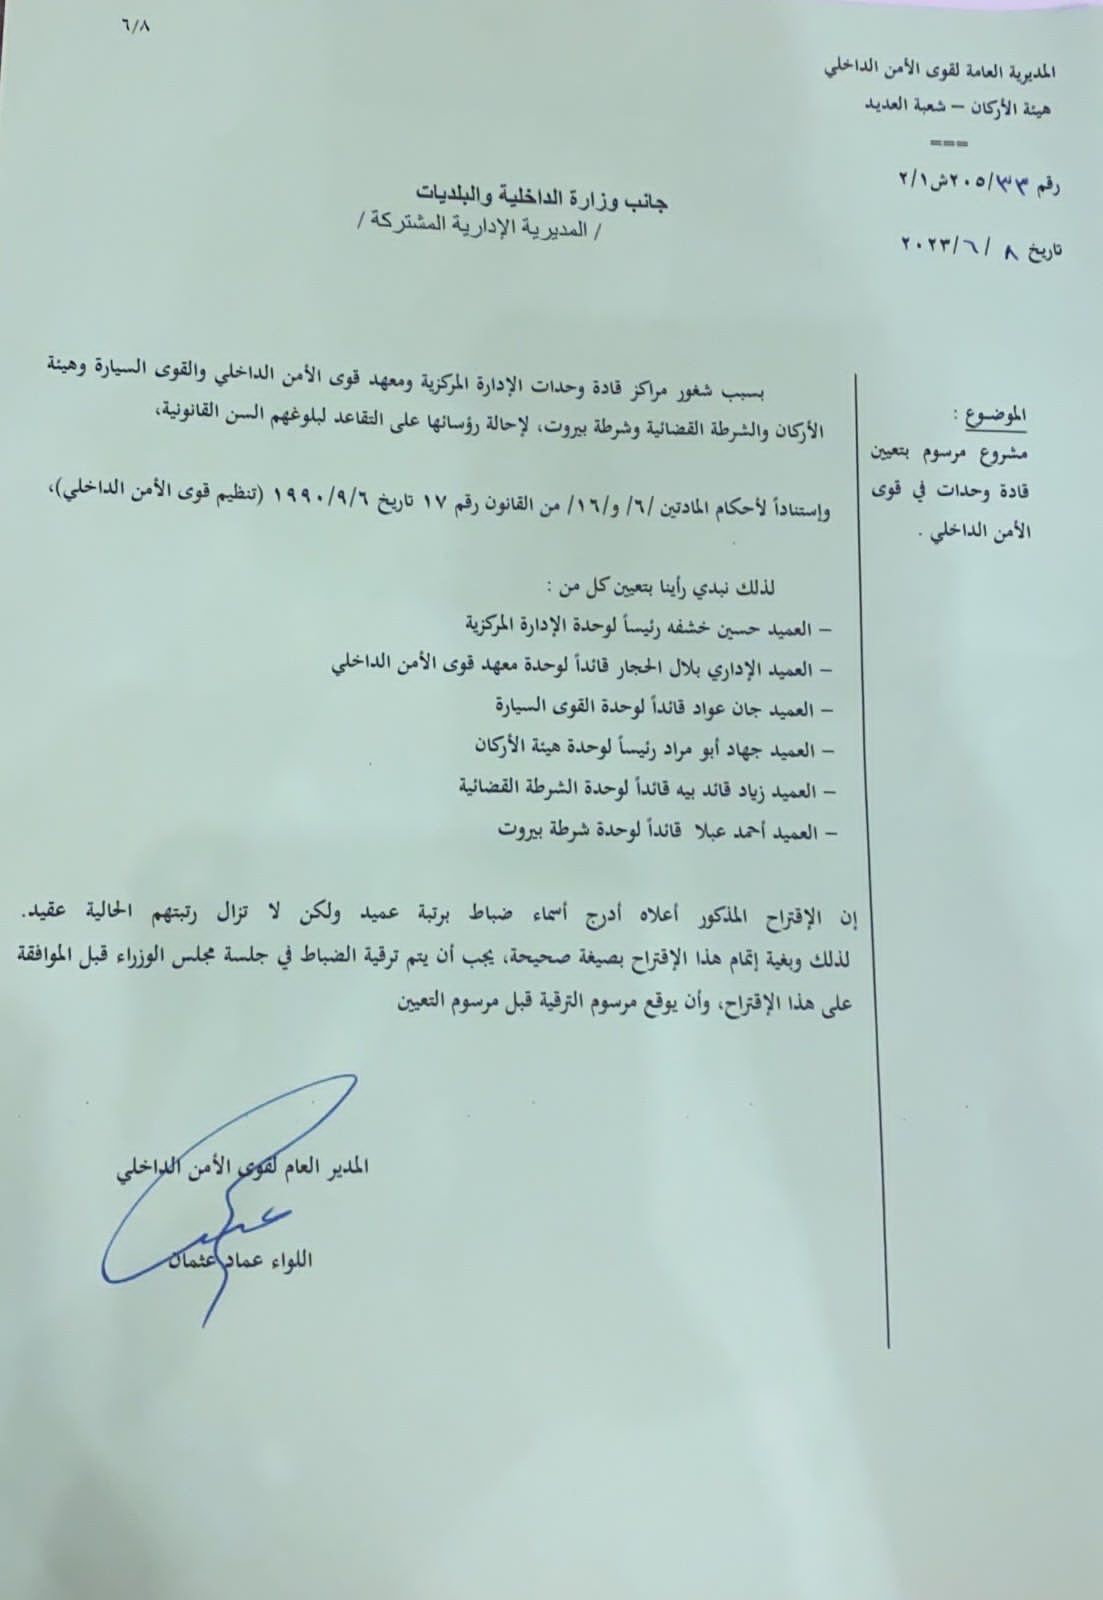 ٦/٨
المديرية العامة لقوى الأمن الداخلي
هيئة الأركان – شعبة العديد
===
رقم ٢٠٥/٣٣ش٢/١
تاريخ ٢٠٢٣/٦/٨
جانب وزارة الداخلية والبلديات
/ المديرية الإدارية المشتركة /
الموضوع :
مشروع مرسوم بتعيين
قادة وحدات في قوى
الأمن الداخلي .
بسبب شغور مراكز قادة وحدات الإدارة المركزية ومعهد قوى الأمن الداخلي والقوى السيارة وهيئة
الأركان والشرطة القضائية وشرطة بيروت، لإحالة رؤسائها على التقاعد لبلوغهم السن القانونية،
وإستناداً لأحكام المادتين /٦/ و/١٦/ من القانون رقم ١٧ تاريخ ١٩٩٠/٩/٦ (تنظيم قوى الأمن الداخلي)،
لذلك نبدي رأينا بتعيين كل من :
– العميد حسين خشفه رئيساً لوحدة الإدارة المركزية
– العميد الإداري بلال الحجار قائداً لوحدة معهد قوى الأمن الداخلي
– العميد جان عواد قائداً لوحدة القوى السيارة
– العميد جهاد أبو مراد رئيساً لوحدة هيئة الأركان
– العميد زياد قائد بيه قائداً لوحدة الشرطة القضائية
– العميد أحمد عبلا قائداً لوحدة شرطة بيروت
إن الإقتراح المذكور أعلاه أدرج أسماء ضباط برتبة عميد ولكن لا تزال رتبتهم الحالية عقيد.
لذلك وبغية إتمام هذا الإقتراح بصيغة صحيحة، يجب أن يتم ترقية الضباط في جلسة مجلس الوزراء قبل الموافقة
على هذا الإقتراح، وأن يوقع مرسوم الترقية قبل مرسوم التعيين
المدير العام لقوى الأمن الداخلي
اللواء عماد عثمان